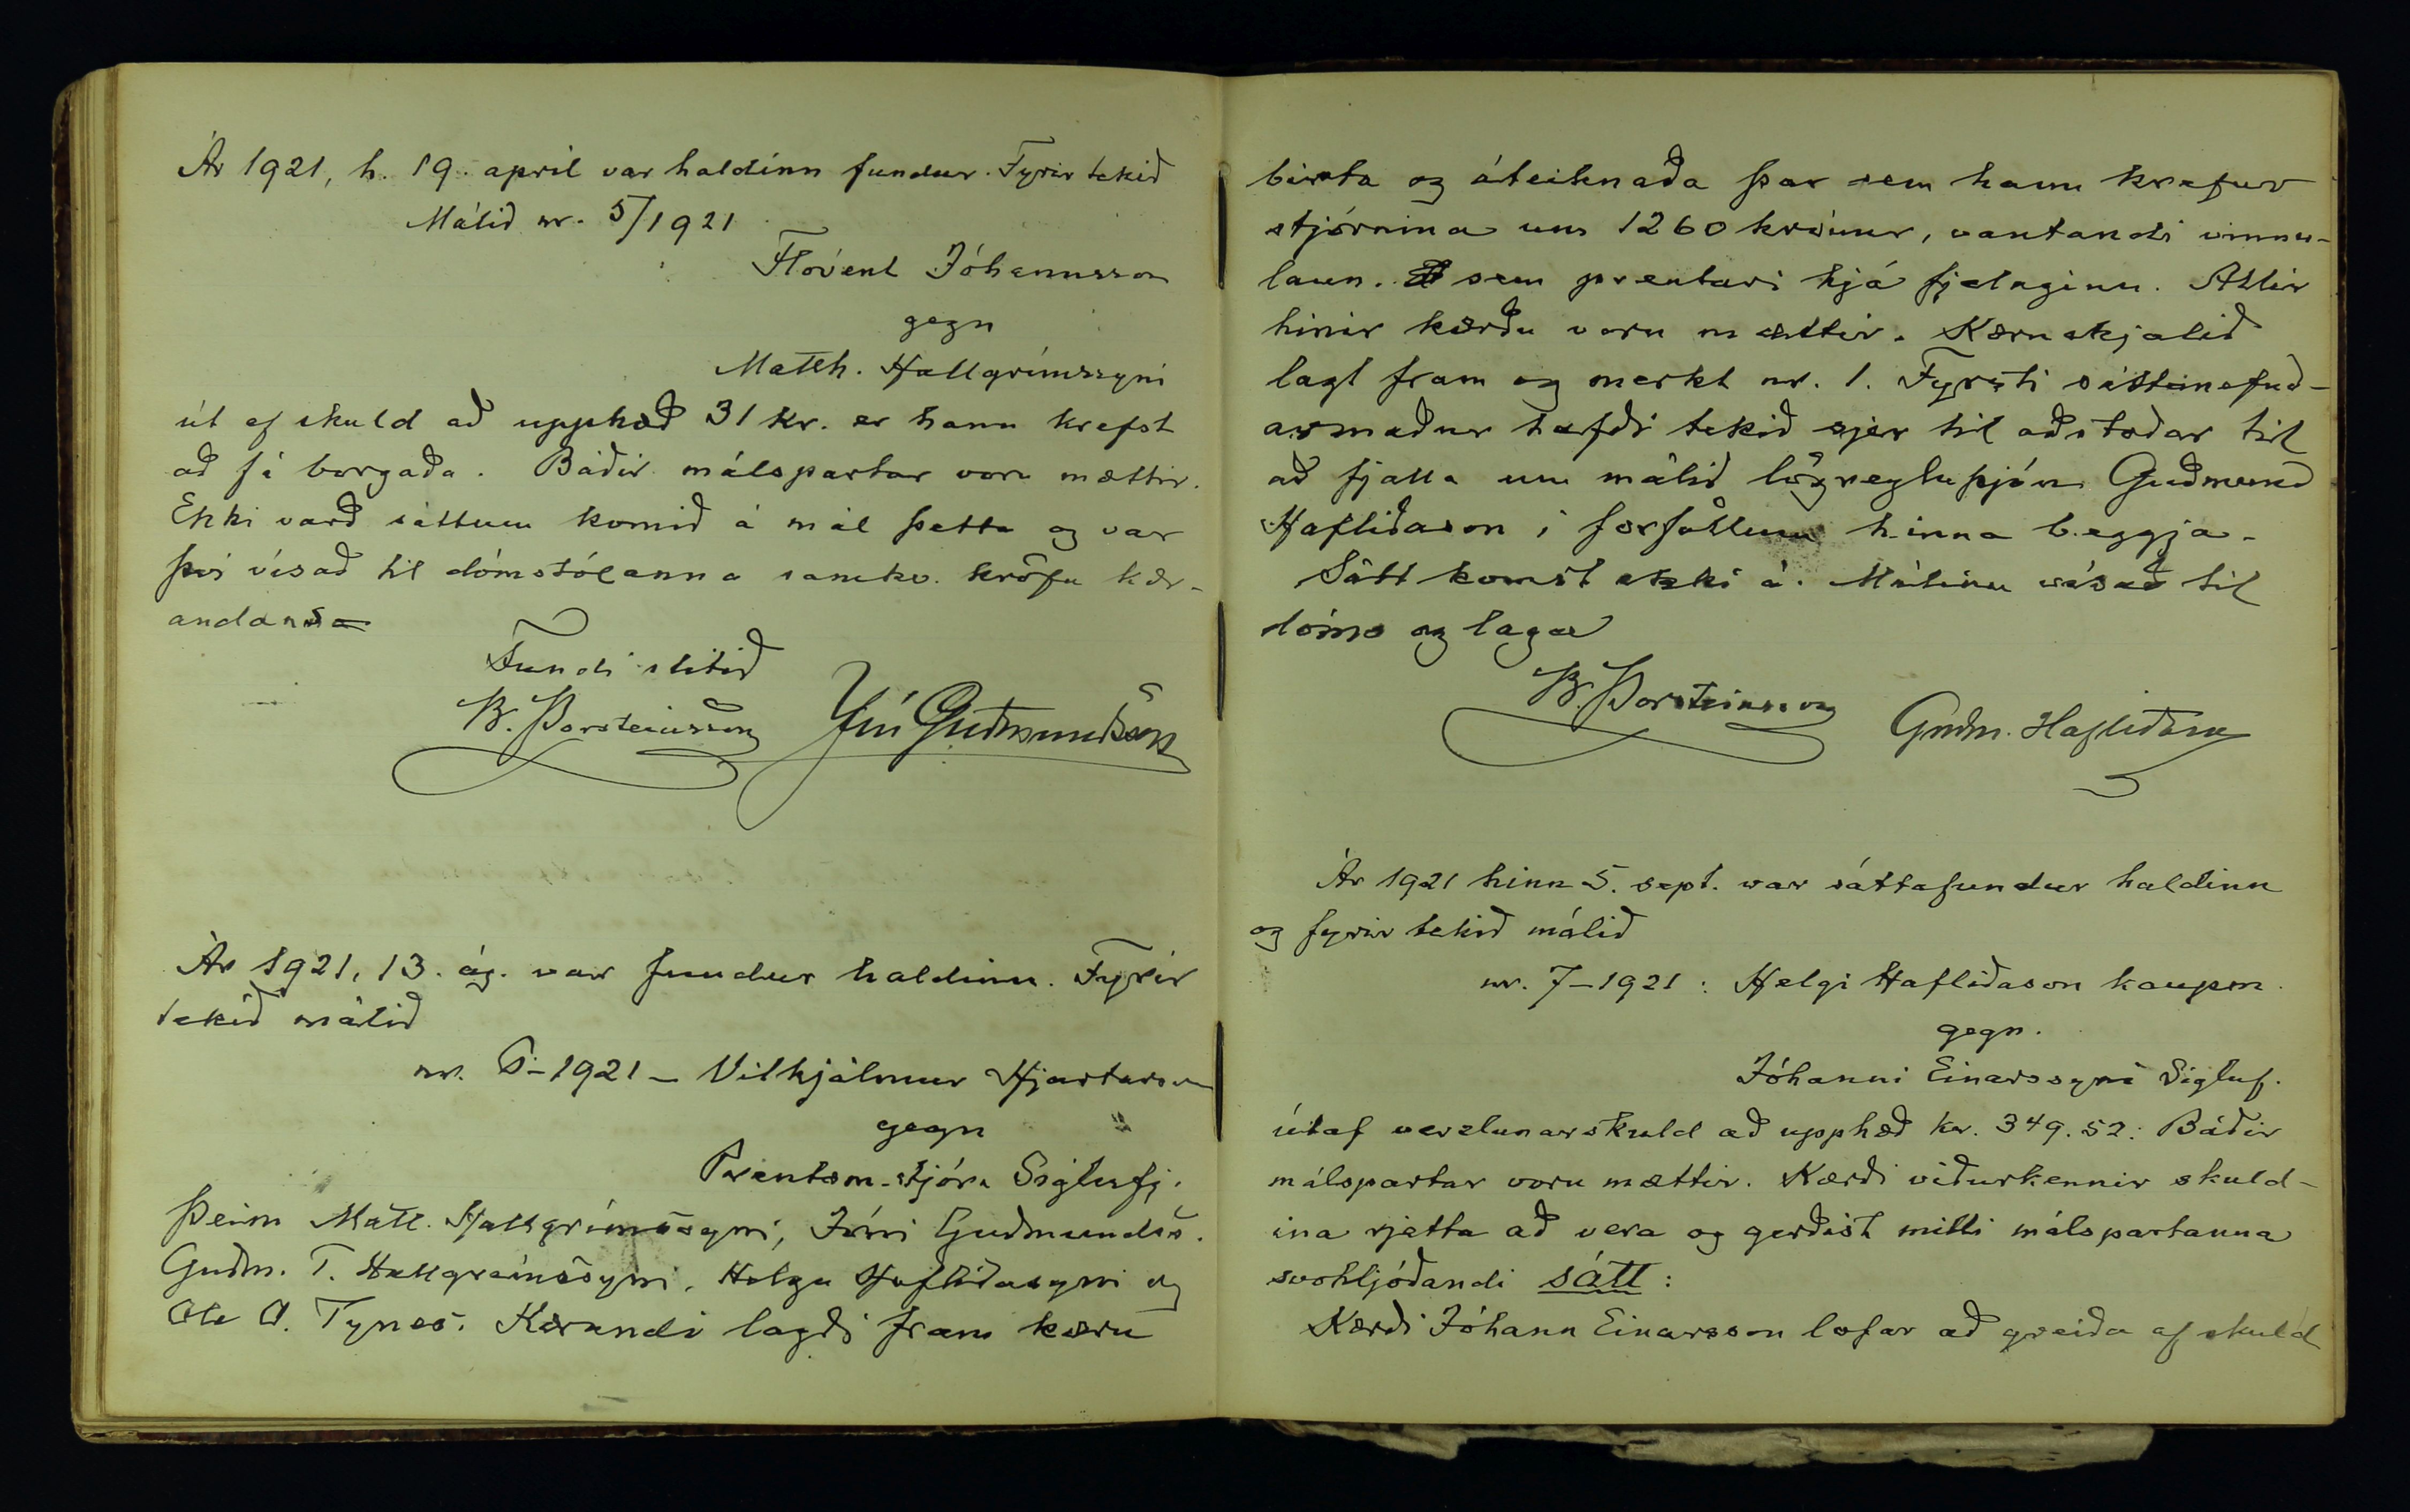 Ár 1921, h. 19. apríl var haldinn fundur. Fyrir tekið
Málið nr. 5/1921
Flóvent Jóhannsson
gegn
Matth. Hallgrímssyni
út af skuld að upphæð 31 kr. er hann krefst
að fá borgaða. Báðir málspartar voru mættir.
Ekki varð sáttum komið á mál þetta og var
því vísað til dómstólanna samkv. kröfu kær-
andans
Fundi slitið
B. Þorsteinsson Jón Guðmundsson
Ár 1921, 13. ág. var fundur haldinn. Fyrir
tekið málið
nr. 6-1921 – Vilhjálmur Hjartarson
gegn
Prentsm.stjórn Siglufj.
Þeim Matt. Hallgrímssyni, Jóni Guðmundss.
Guðm. T. Hallgrímssyni, Helga Hafliðasyni og
Ole O. Tynes. Kærandi lagði fram kæru
birta og áteiknaða þar sem hann krefur
stjórnina um 1260 krónur, vantandi vinnu-
laun. sem prentari hjá fjelaginu. Allir
hinir kærðu voru mættir. Kæruskjalið
lagt fram og merkt nr. 1. Fyrsti sáttanefnd-
armaður hafði tekið sjer til aðstoðar til
að fjalla um málið lögregluþjón Guðmund
Hafliðason í forföllum hinna beggja.
Sátt komst ekki á. Málinu vísað til
dóms og laga
B. Þorsteinsson Guðm. Hafliðason
Ár 1921 hinn 5. sept. var sáttafundur haldinn
og fyrir tekið málið
nr. 7-1921: Helgi Hafliðason kaupm.
gegn.
Jóhanni Einarssyni Sigluf.
útaf verzlunarskuld að upphæð kr. 349.52: Báðir
málspartar voru mættir. Kærði viðurkennir skuld-
ina rjetta að vera og gerðist milli málspartanna
svohljóðandi sátt:
Kærði Jóhann Einarsson lofar að greiða af skuld